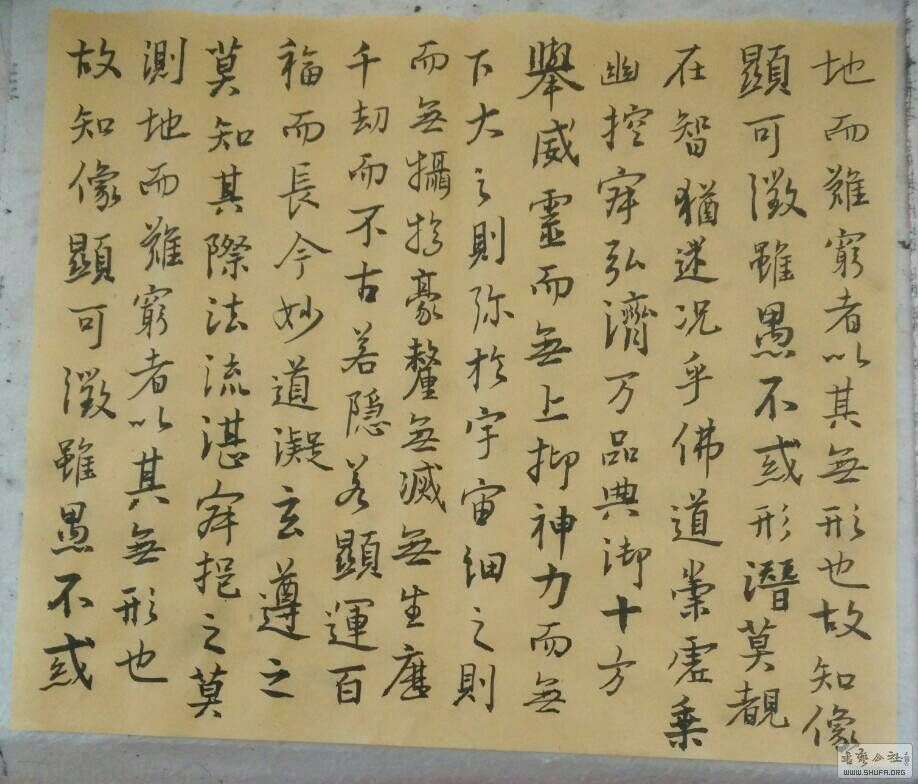 地而難窮者以其無形也故知像
顯可徵雖愚不惑形潛莫覩
在智猶迷况乎佛道崇虛乘
幽控寂弘濟万品典御十方
舉威靈而無上抑神力而無
下大之則弥於宇宙細之則
而無攝於豪釐無滅無生歷
千劫而不古若隐若顯運百
福而長今妙道凝玄遵之
莫知其際法流湛寂挹之莫
測地而難窮者以其無形也
故知像顯可徵雖愚不惑
书艺公社
WWW.SHUFA.ORG